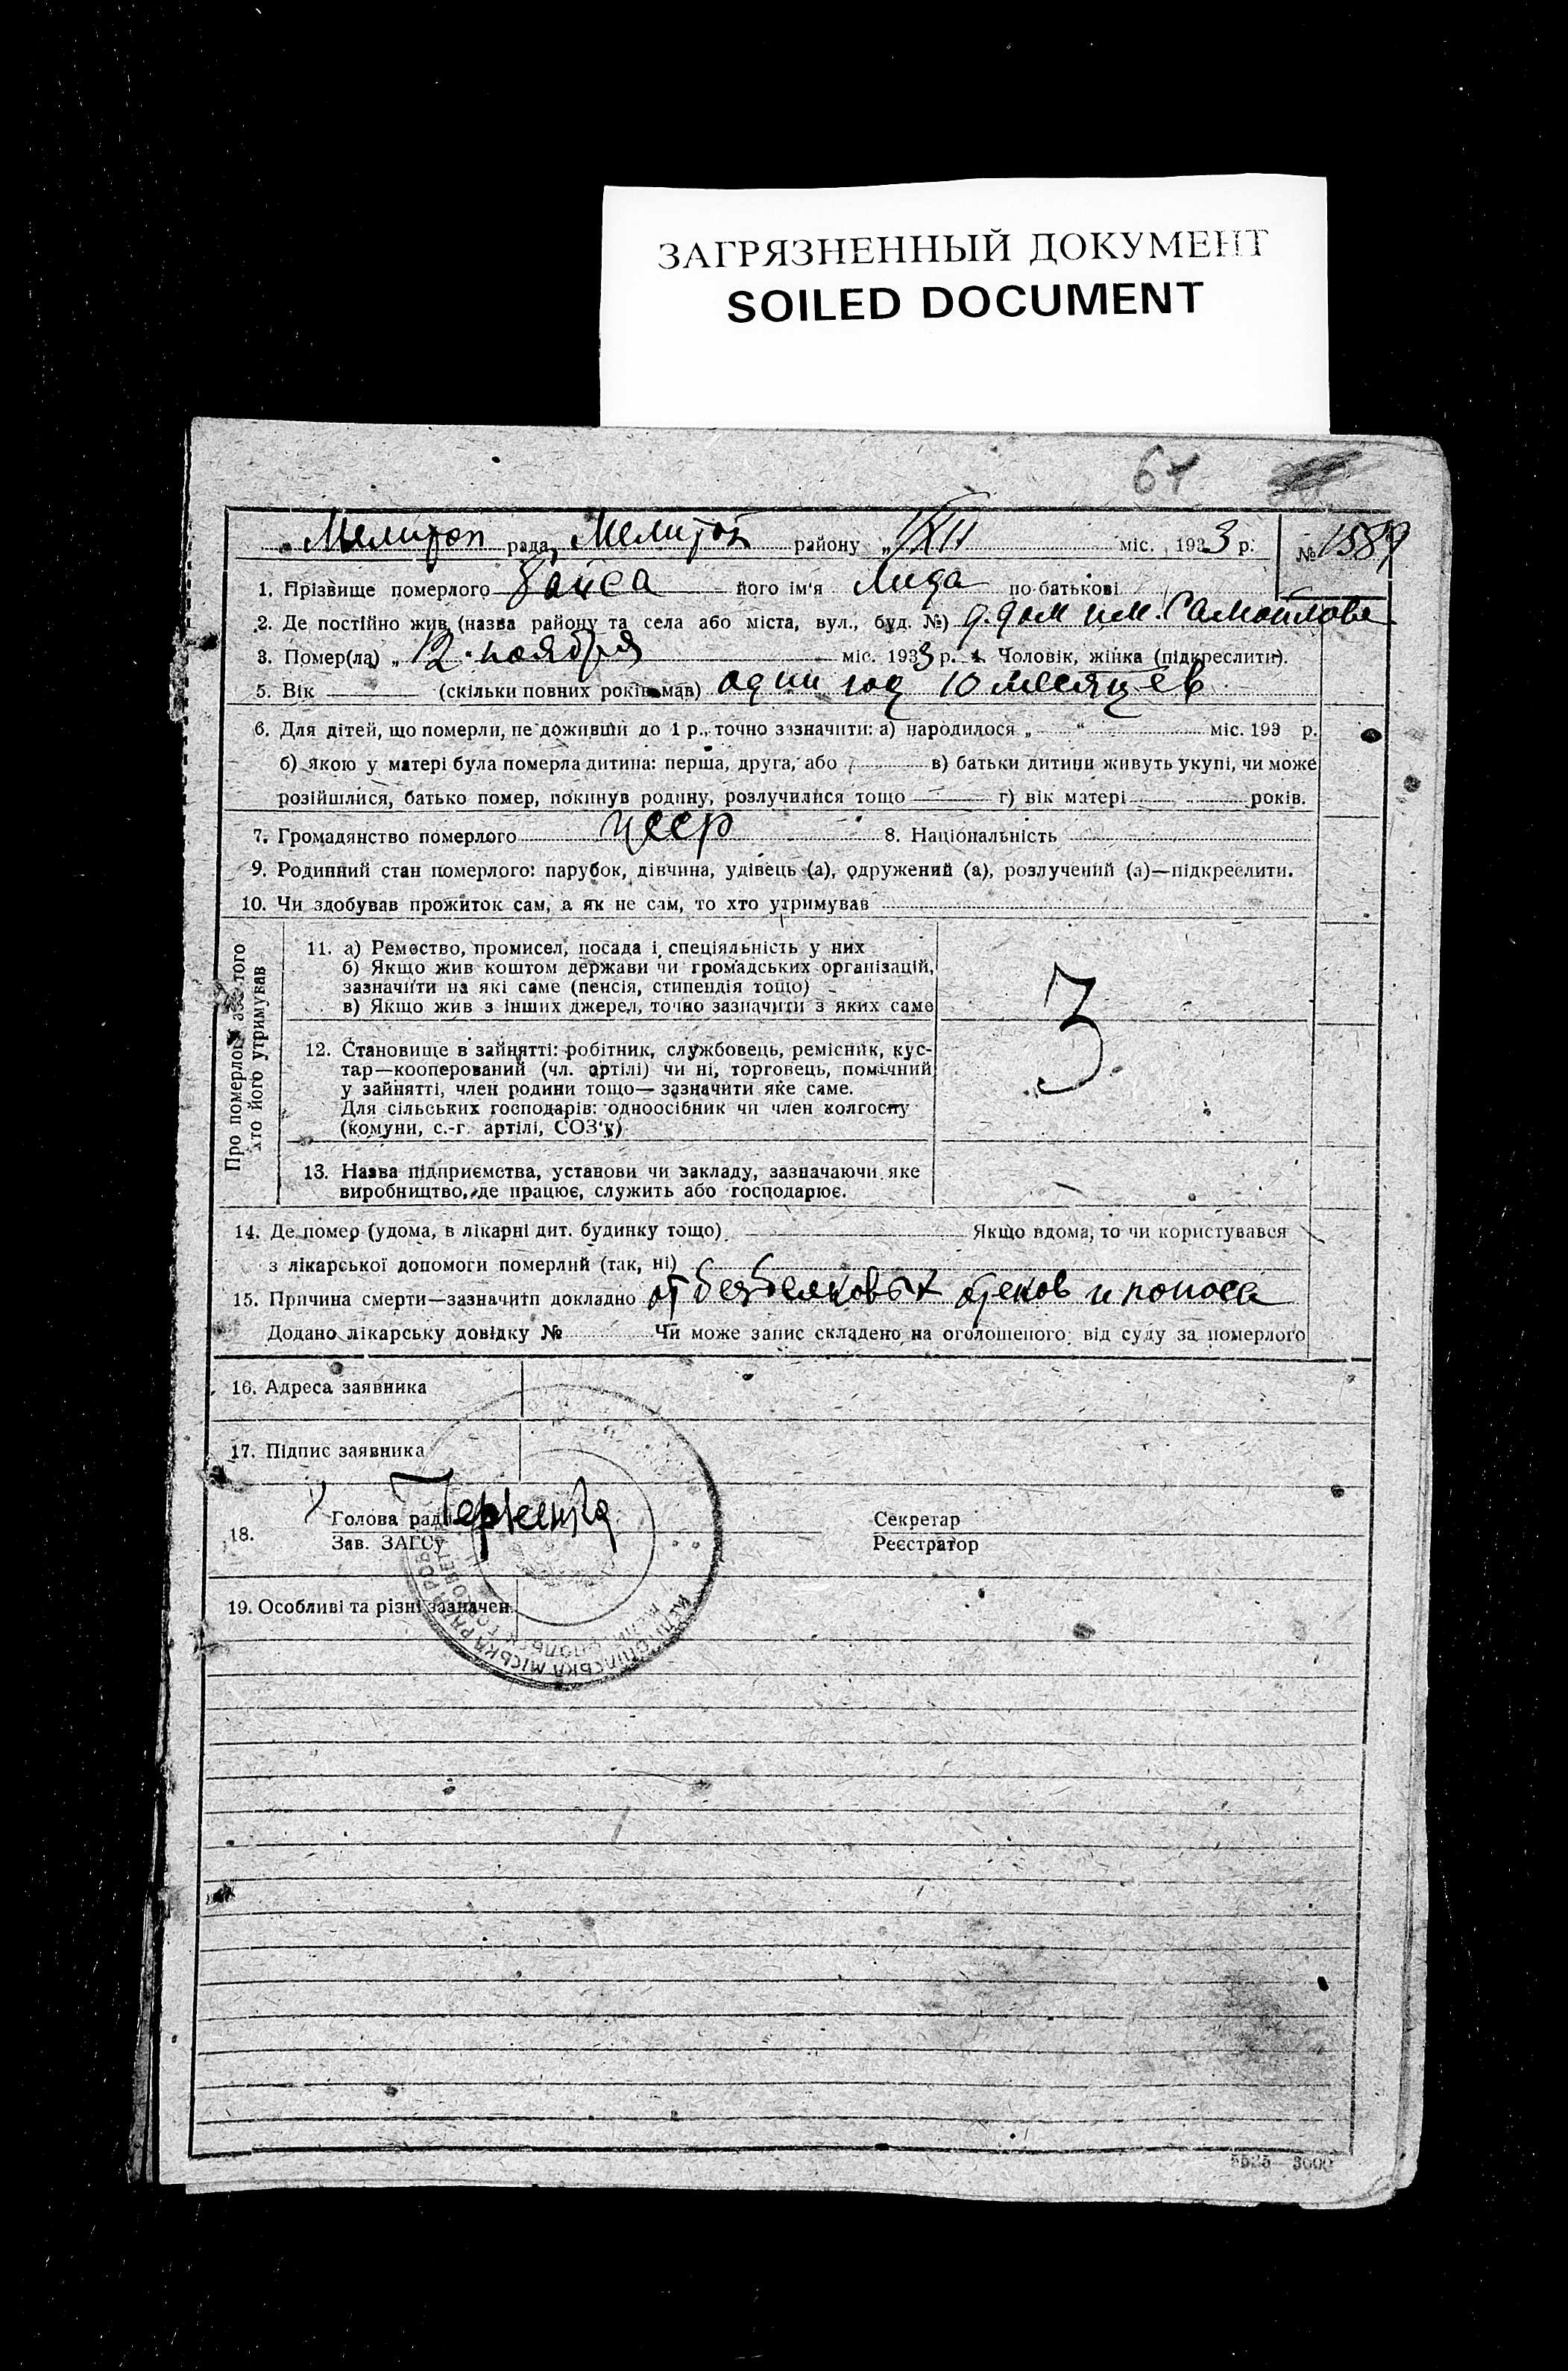 ЗАГРЯЗНЕННЫЙ ДОКУМЕНТ
SOILED DOCUMENT
64
Мелитоп рада, Мелитоп району „ міс. 1933 р. № 1589
1. Прізвище померлого його ім'я Лида по-батькові
2. Де постійно жив (назва району та села або міста, вул., буд. №) д. дом им. Самойлова
3. Помер(ла) „ 12 ноября міс. 1933 р. 4. Чоловік, жінка (підкреслити).
5. Вік (скільки повних років мав) один год 10 месяцев
6. Для дітей, що померли, не доживши до 1 р., точно зазначити: а) народилося „ “ міс. 193 р.
б) якою у матері була померла дитина: перша, друга, або в) батьки дитини живуть укупі, чи може
розійшлися, батько помер, покинув родину, розлучилися тощо г) вік матері років.
7. Громадянство померлого 8. Національність
9. Родинний стан померлого: парубок, дівчина, удівець (а), одружений (а), розлучений (а)—підкреслити.
10. Чи здобував прожиток сам, а як не сам, то хто утримував
Про померлого або того
хто його утримував
11. а) Ремество, промисел, посада і спеціяльність у них
б) Якщо жив коштом держави чи громадських організацій,
зазначити на які саме (пенсія, стипендія тощо)
в) Якщо жив з інших джерел, точно зазначити з яких саме
3
12. Становище в зайнятті: робітник, службовець, ремісник, кус-
тар—кооперований (чл. артілі) чи ні, торговець, помічний
у зайнятті, член родини тощо—зазначити яке саме.
Для сільських господарів: одноосібник чи член колгоспу
(комуни, с.-г. артілі, СОЗ'у)
13. Назва підприємства, установи чи закладу, зазначаючи яке
виробництво, де працює, служить або господарює.
14. Де помер (удома, в лікарні дит. будинку тощо) Якщо вдома, то чи користувався
з лікарської допомоги померлий (так, ні)
15. Причина смерти—зазначити докладно от безбелковых отеков и поноса
Додано лікарську довідку № Чи може запис складено на оголошеного від суду за померлого
16. Адреса заявника
17. Підпис заявника
18. Голова ради Секретар
Зав. ЗАГСу Реєстратор
19. Особливі та різні зазначен.
МІСЬКА РАДА